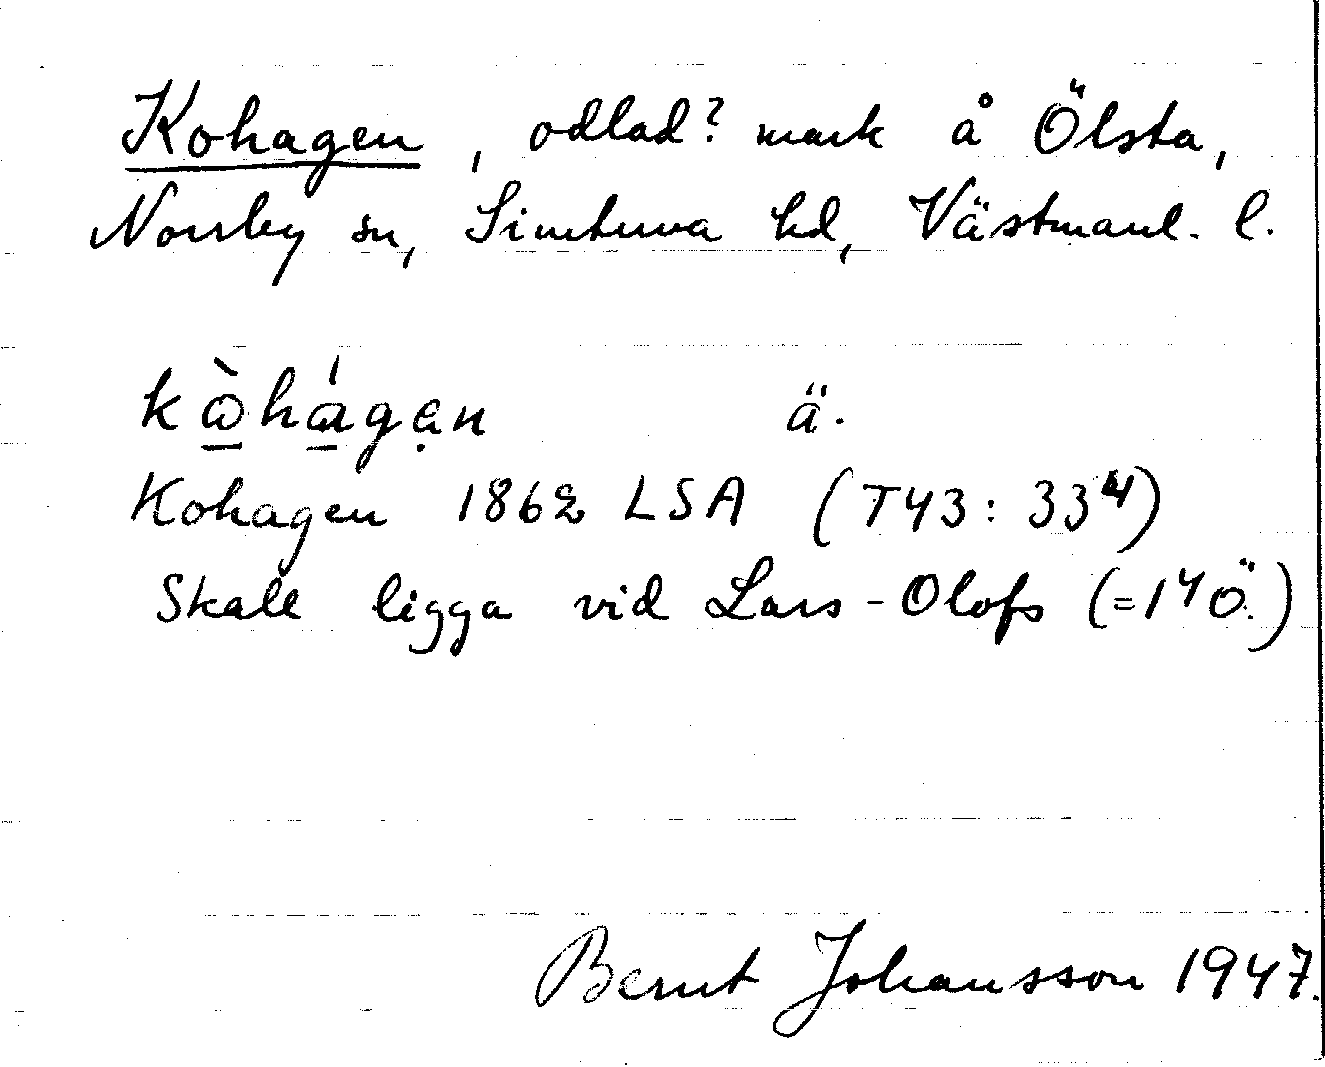 Kohagen, odlad? mark å Ölsta,
Norrby sn, Simtuna hd, Västmanl. l.
kὼ̱há̱gẹn ä.
Kohagen 1862 LSA (T43: 33⁴)
Skall ligga vid Lars-Olofs (=1⁴ Ö.)
Bernt Johansson 1947.